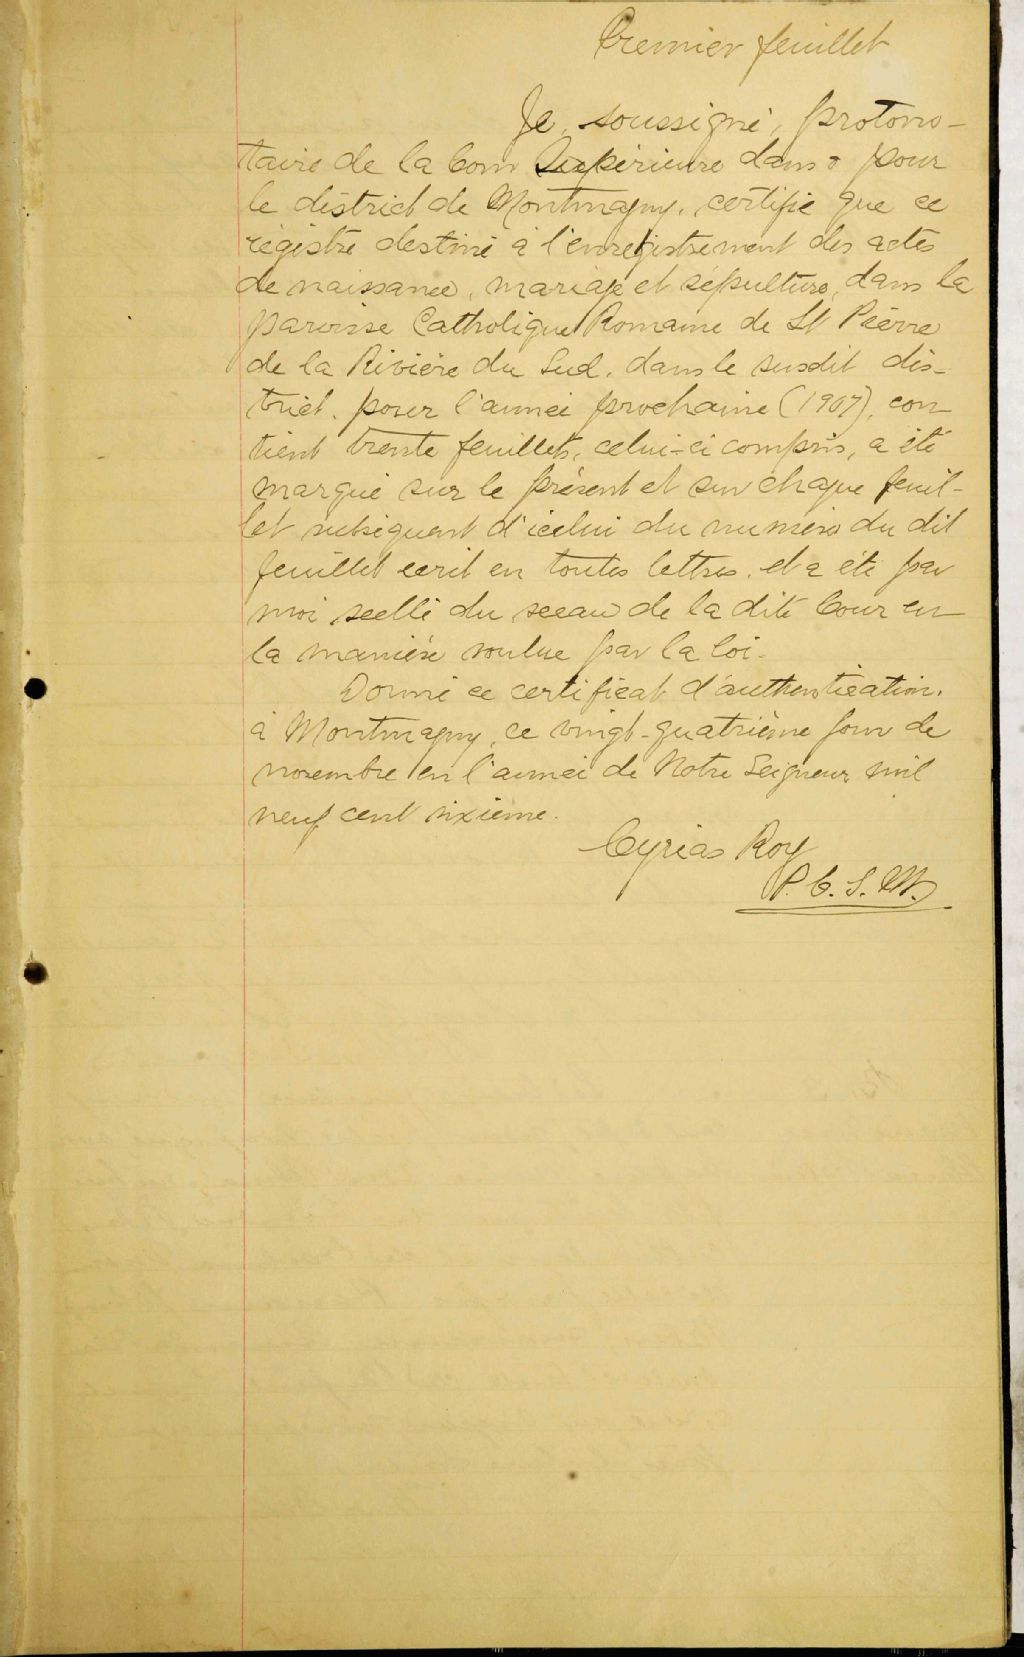 Premier feuillet
Je, soussigné, protono-
taire de la Cour Supérieure dans & pour
le district de Montmagny, certifie que ce
régistre destiné à l'enregistrement des actes
de naissance, mariage et sépulture, dans la
paroisse Catholique Romaine de St Pierre
de la Rivière du Sud, dans le susdit dis-
trict, pour l'année prochaine (1907), con
tient trente feuillets, celui-ci compris, a été
marqué sur le présent et sur chaque feuil-
let subséquent d'icelui du numéro du dit
feuillet écrit en toutes lettres, et a été par
moi scellé du sceau de la dite Cour en
la manière voulue par la loi.
Donné ce certificat d'authentication,
à Montmagny, ce vingt-quatrième jour de
novembre en l'année de Notre Seigneur mil
neuf cent sixième.
Cyrias Roy
P. C. S. M.